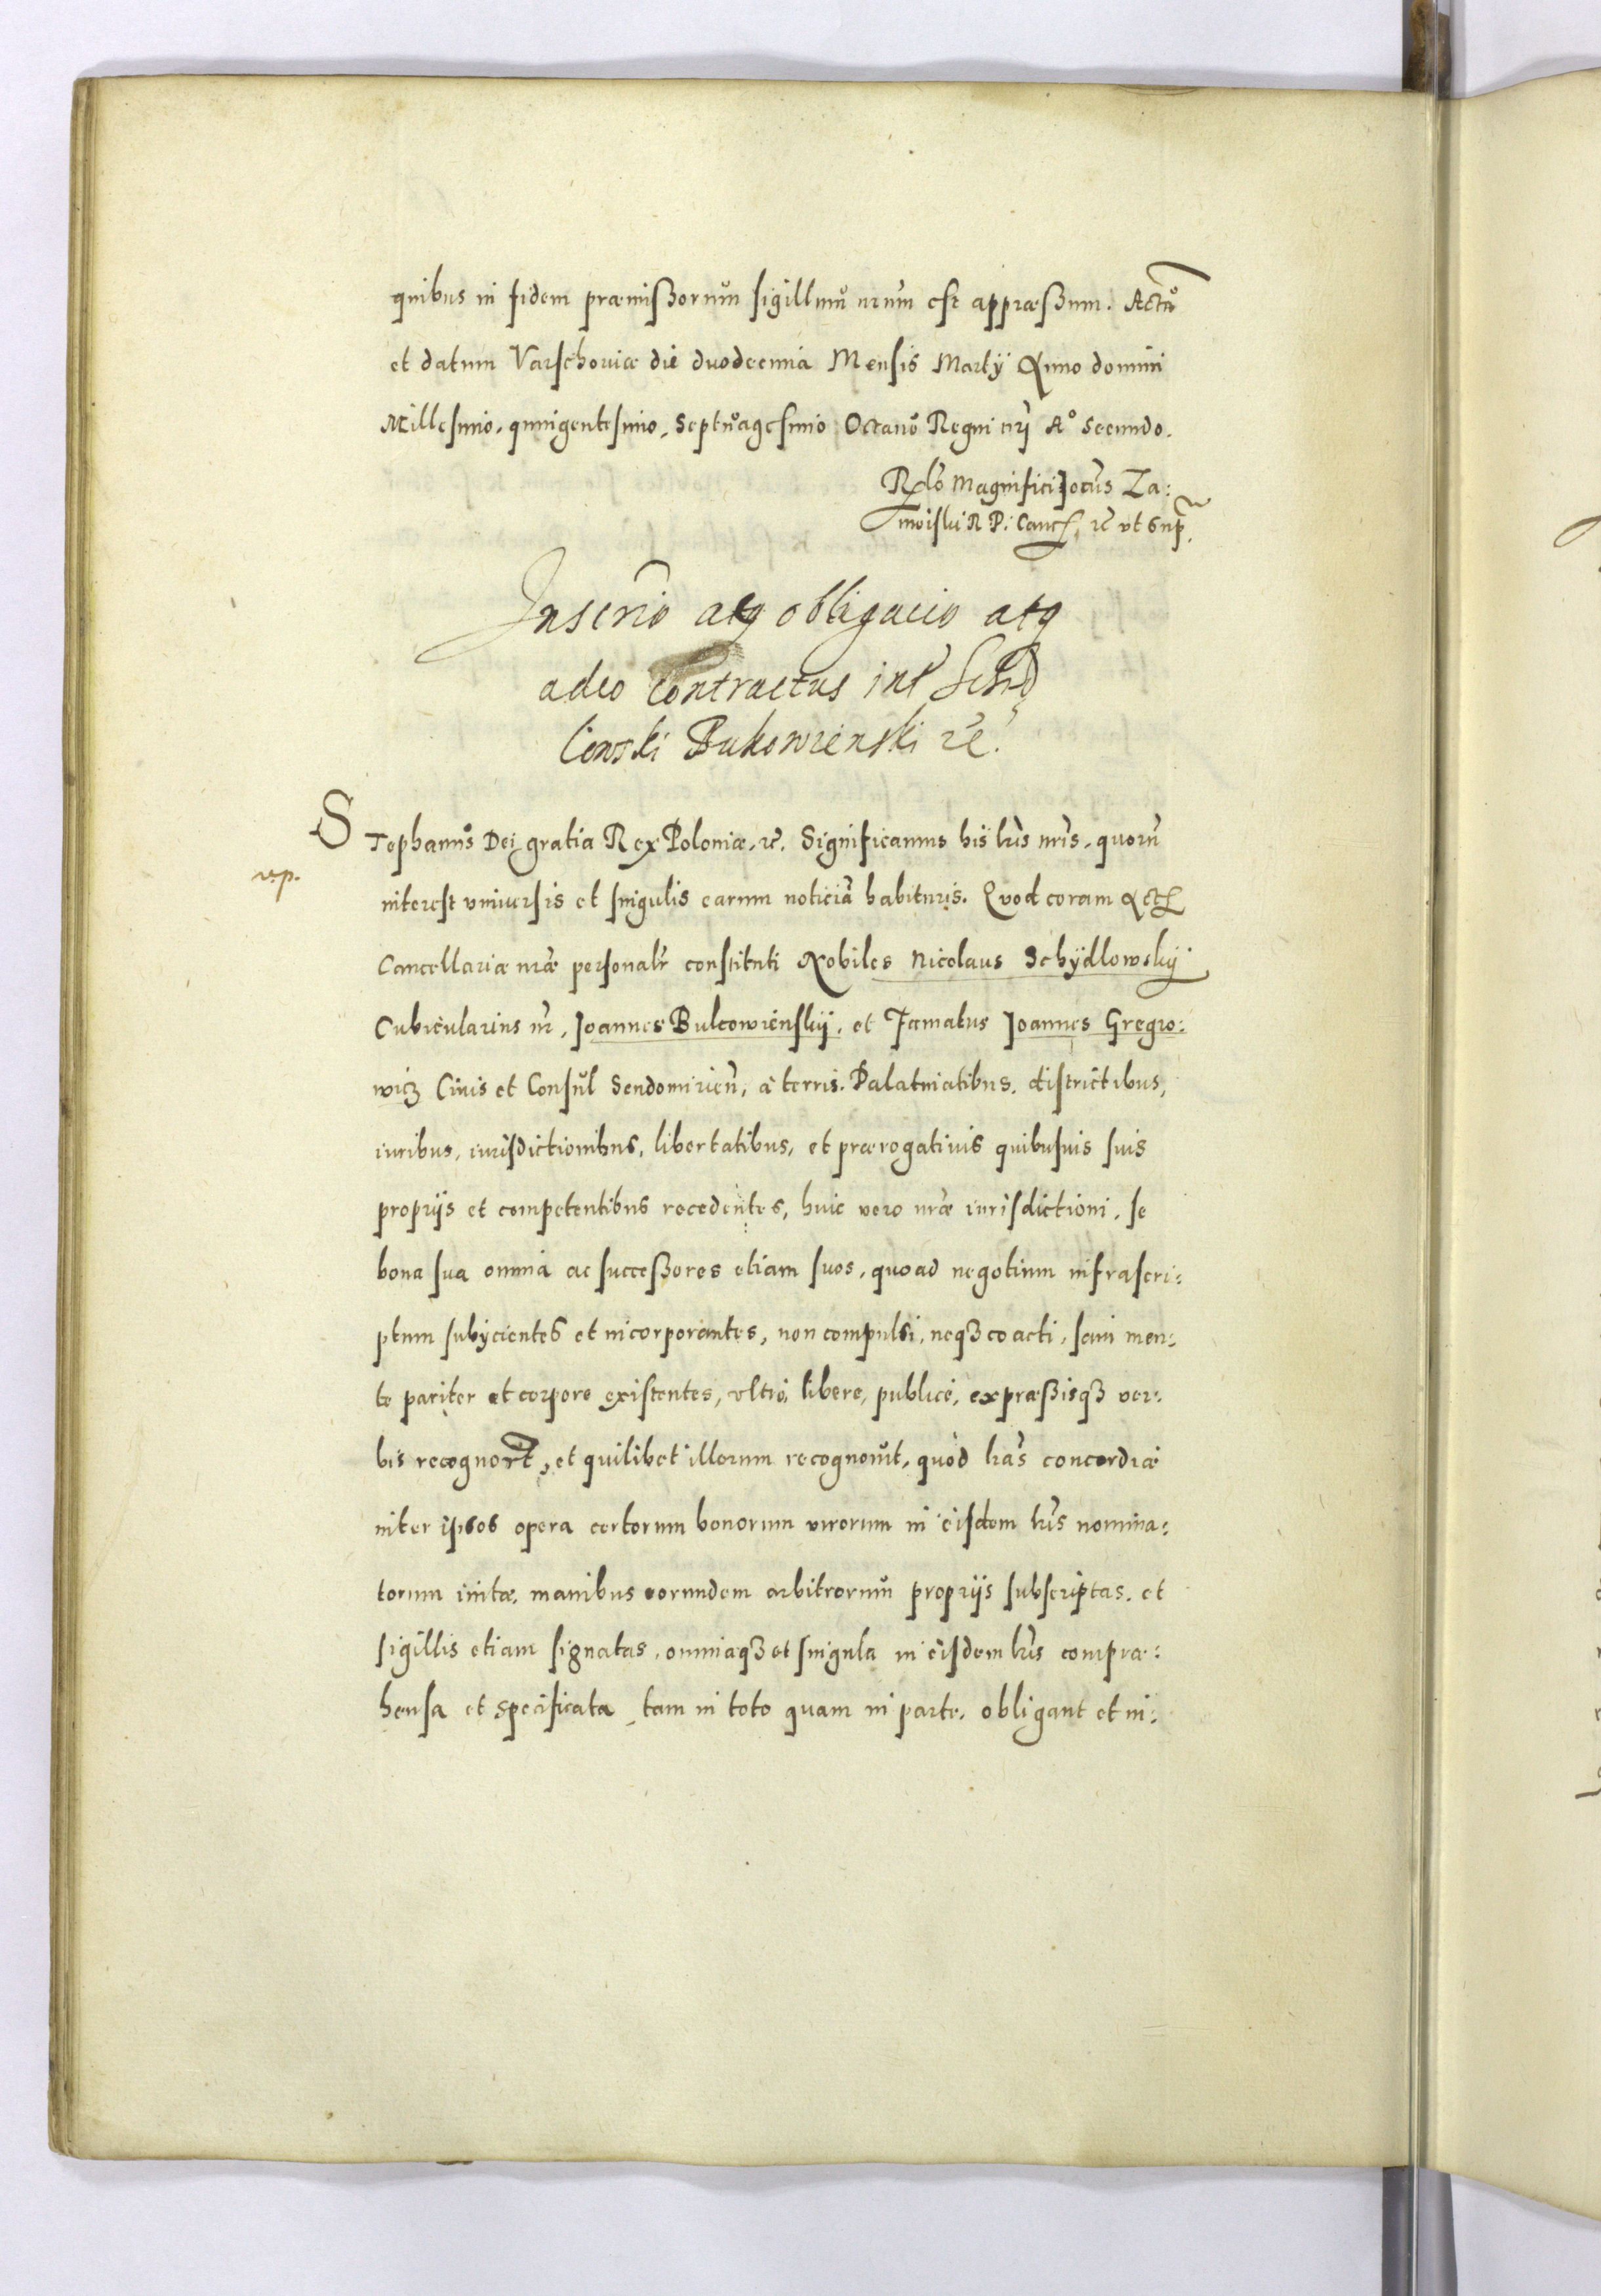 quibus in fidem præmißorum sigillum nrum est appræßum. Actũ
et datum Varschouiæ die duodecima Mensis Martij Anno domini
Millesimo, quingentesimo, Septuagesimo Octauo Regni nri Aº Secundo.
Rlõ Magnifici Joãis Za:
moiski R P. Canc. rc̃ vt Supr.
Inscrio atq obligacio atq
adeo Contractus int Schid
lowski Bukowienski rc̃.
STephanus Dei gratia Rex Poloniæ. rc̃. Significamus his lris nris, quorũ
interest vniuersis et singulis earum noticiã habituris. Quod coram Act
Cancellariæ nræ personalr constituti Nobiles Nicolaus Schÿdlowskÿ
Cubicularius nr, Joannes Bukowienskÿ, et Famatus Joannes Gregro:
wicz Ciuis et Consul Sendomirieñ, à terris. Palatinatibus. districtibus,
iuribus, iurisdictionibus, libertatibus, et prærogatiuis quibusuis suis
proprijs et competentibus recedentes, huic vero nræ iurisdictioni, se
bona sua omnia ac succeßores etiam suos, quoad negotium infrascri:
ptum subijcientes et incorporantes, non compulsi, neqз coacti, sani men:
te pariter et corpore existentes, vltrò, libere, publicè, expræßisqз ver:
bis recognort, et quilibet illorum recognouit, quòd lras concordiæ
inter ipsos opera certorum bonorum virorum in eisdem lris nomina:
torum initæ, manibus eorundem arbitrorum proprijs subscriptas. et
sigillis etiam signatas, omniaqз et singula in eisdem lris compræ:
hensa et specificata tam in toto quam in parte. obligant et in: